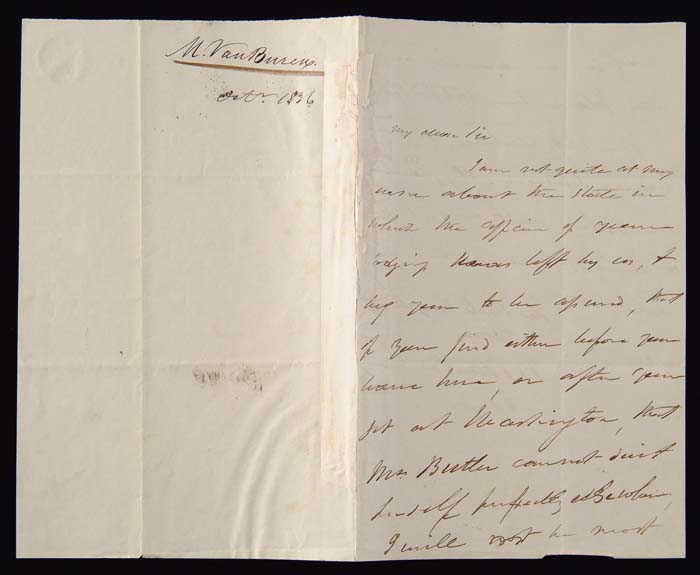 M. Van Buren.
Octr. 1836
My dear Sir
I am not quite at my
ease about the State in
which the affair of your
lodging was left by us, &
beg you to be assured, that
if you find either before you
leave here, or after you
get at Washington, that
Mrs Butler cannot suit
herself perfectly elsewhere,
I will most